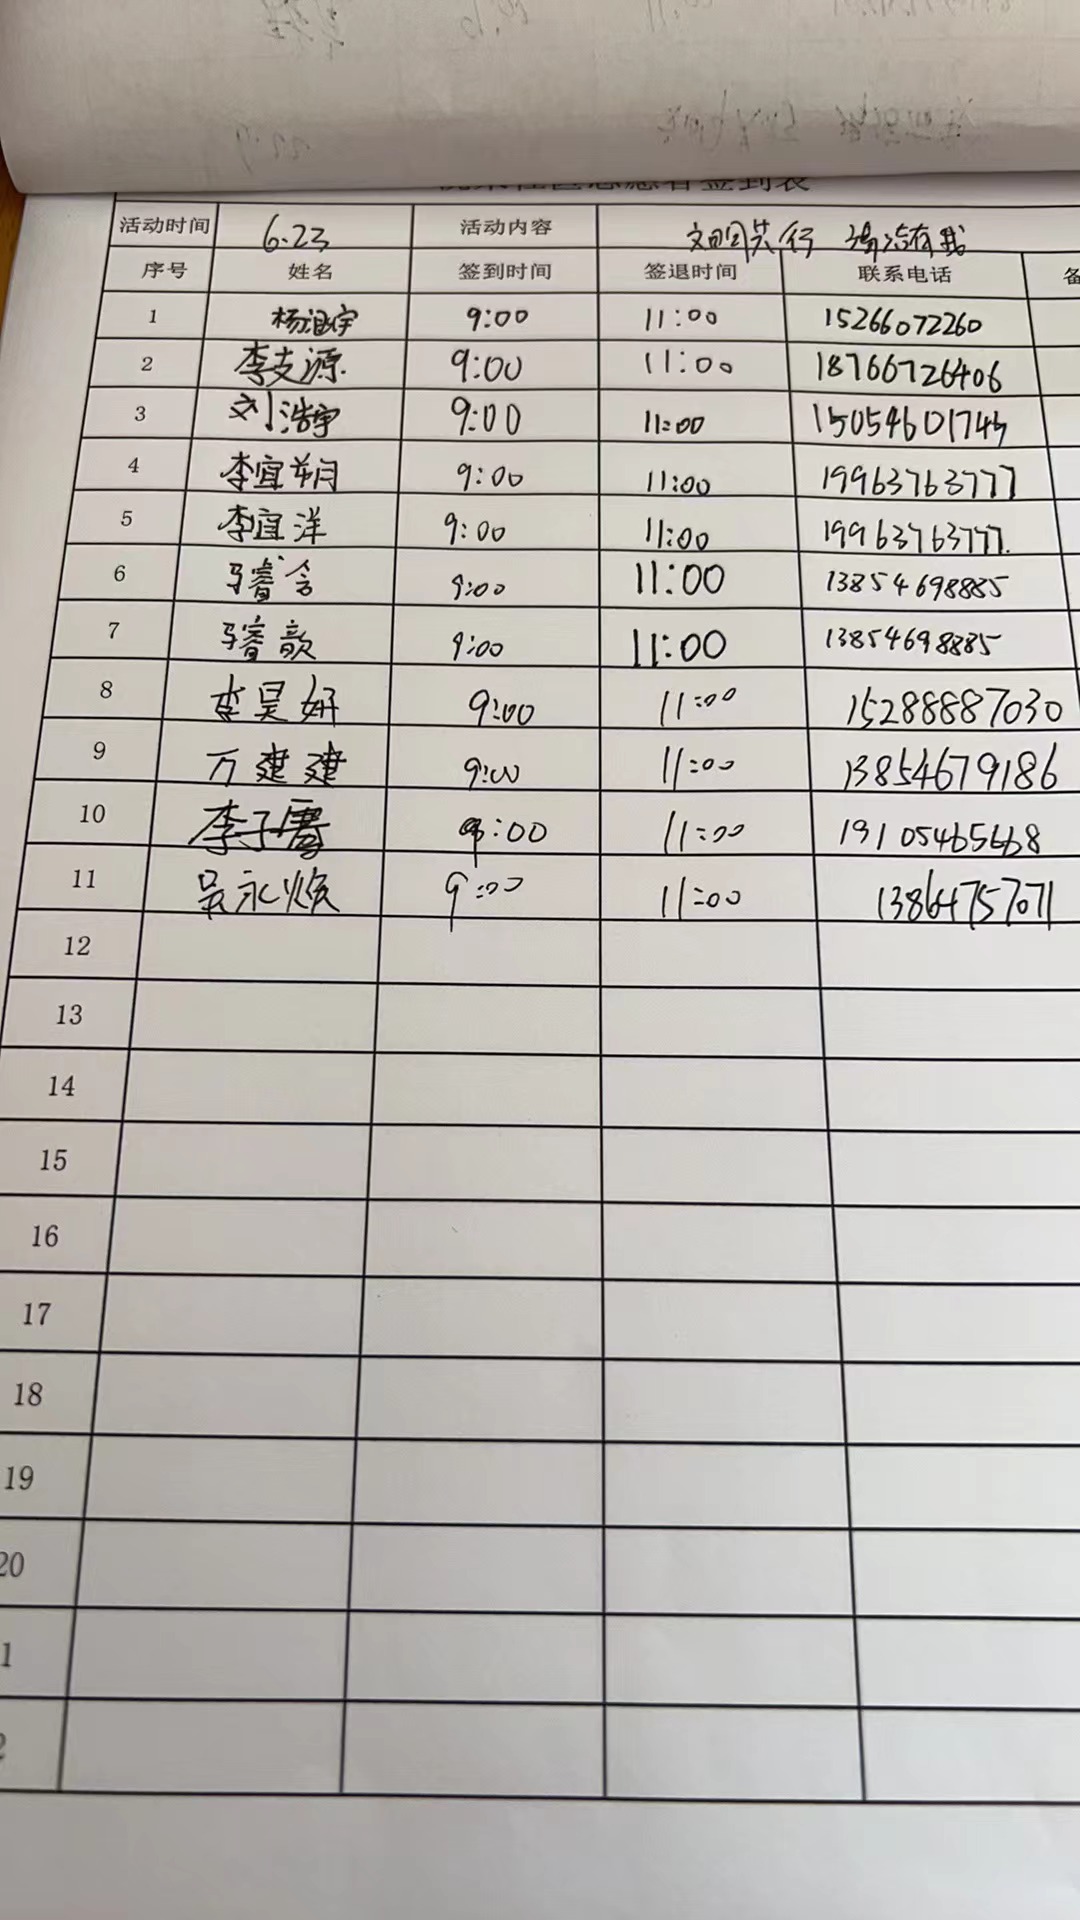 社区志愿者签到表
活动时间 6.23 活动内容 文明同共行 清洁有我
序号 姓名 签到时间 签退时间 联系电话 备
1 杨 宇 9:00 11:00 15266072260
2 李支源 9:00 11:00 18766726406
3 刘浩宇 9:00 11:00 15054601743
4 李宜 9:00 11:00 19963763777
5 李宜洋 9:00 11:00 19963763777
6 马睿含 9:00 11:00 13854698885
7 马睿歆 9:00 11:00 13854698885
8 李昊妍 9:00 11:00 15288887030
9 万建建 9:00 11:00 13854679186
10 李子 9:00 11:00 19105465668
11 吴永焕 9:00 11:00 13864757071
12
13
14
15
16
17
18
19
20
1
2